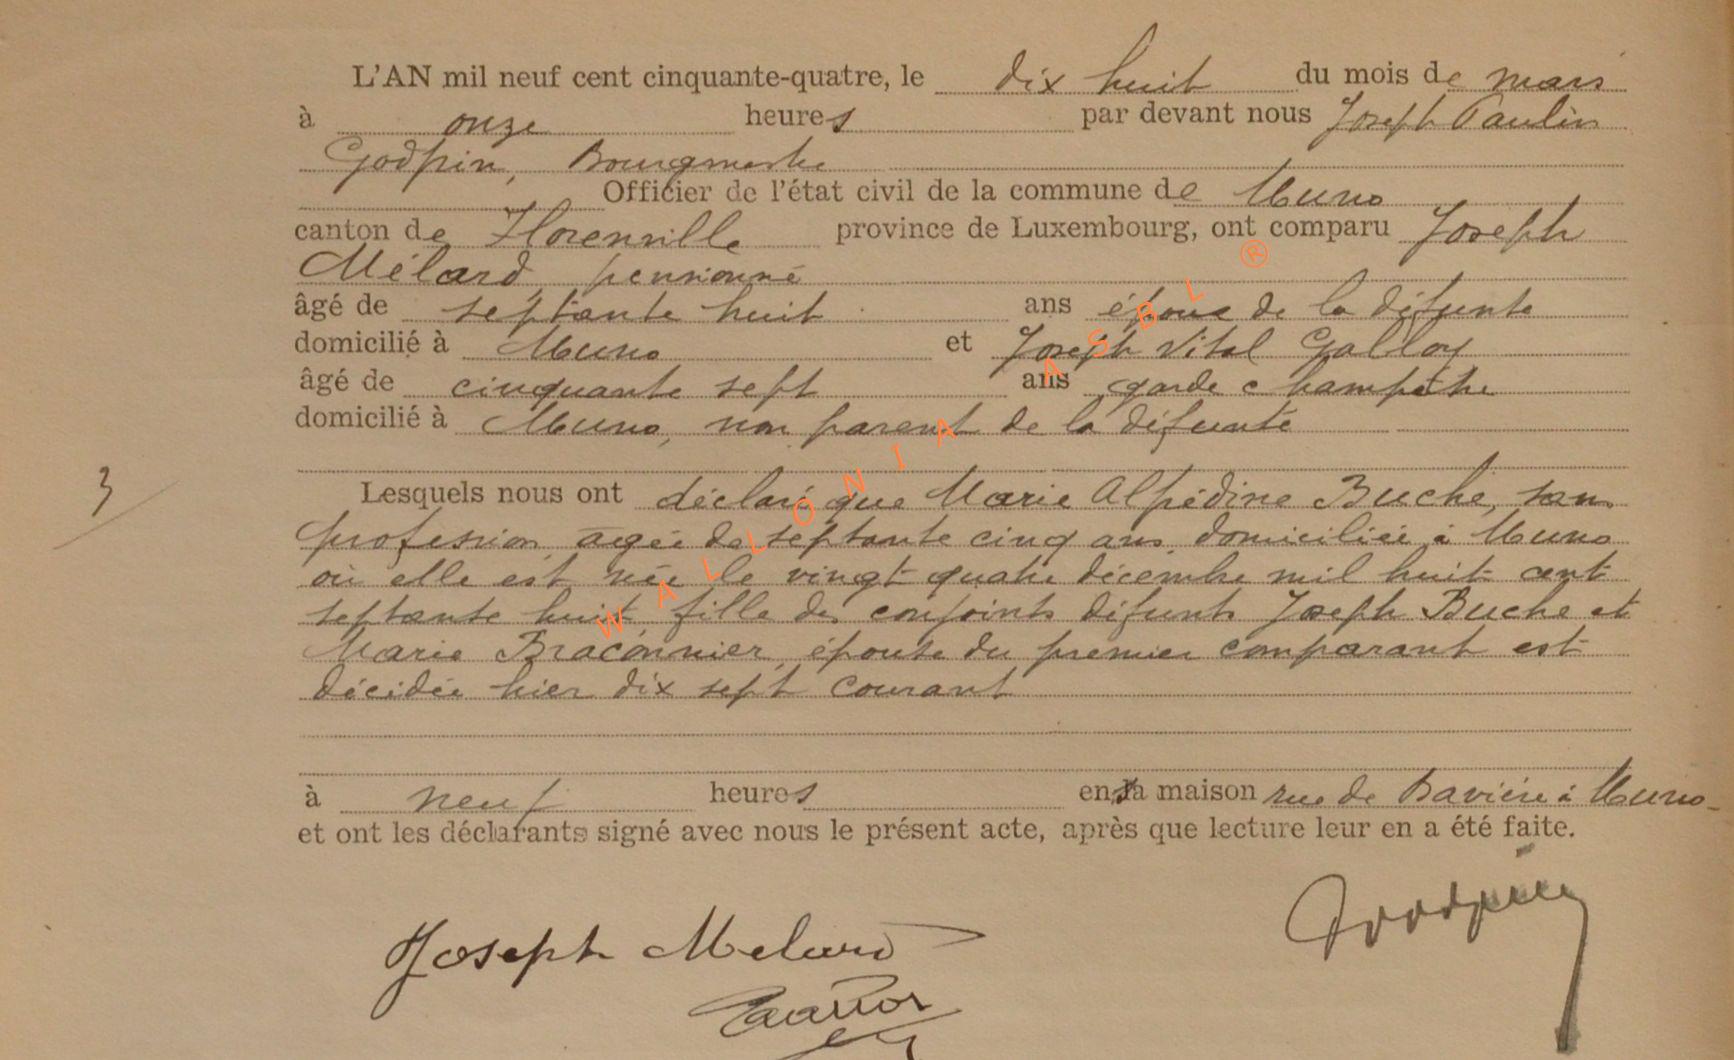 L'AN mil neuf cent cinquante-quatre, le dix huit du mois de mars
à onze heures par devant nous Joseph Paulin
Godfrin, Bourgmestre
Officier de l'état civil de la commune de Muno
canton de Florenville province de Luxembourg, ont comparu Joseph
Mélard, pensionné
âgé de septante huit ans époux de la défunte
domicilié à Muno et Joseph Vital Galloy
âgé de cinquante sept ans garde champêtre
domicilié à Muno, non parent de la défunte
3
Lesquels nous ont déclaré que Marie Alpédine Buche, sans
profession, agée de septante cinq ans, domiciliée à Muno
où elle est née le vingt quatre décembre mil huit cent
septante huit, fille des conjoints défunts Joseph Buche et
Marie Braconnier, épouse du premier comparant est
décédée hier dix sept courant
à neuf heures en sa maison rue de Bavière à Muno
et ont les déclarants signé avec nous le présent acte, après que lecture leur en a été faite.
Joseph Melard
WALLONIA ASBL ®